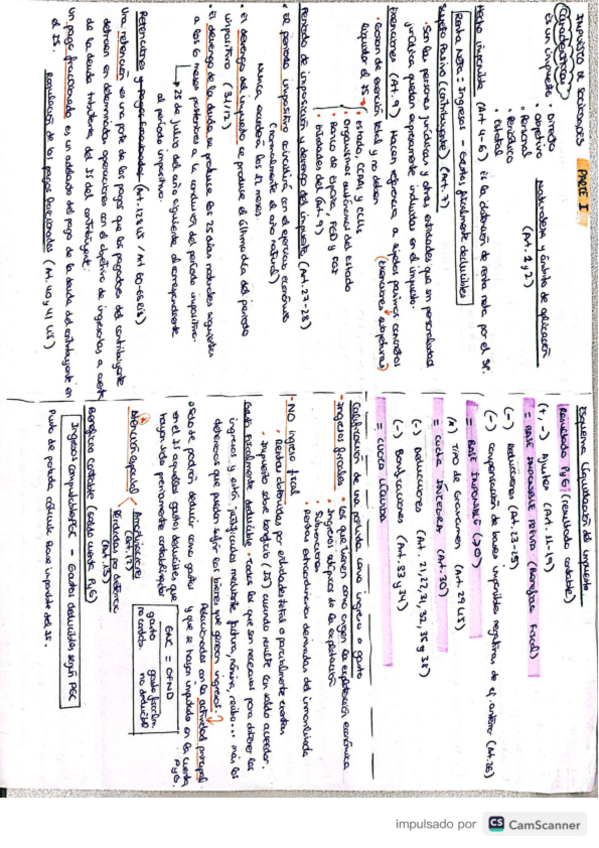 IMPUESTO DE SOCIEDADES PARTE I
Características
Es un impuesto: Directo
• Objetivo
• Personal
• Periódico
• Estatal
Naturaleza y ámbito de aplicación
(Art. 1 y 2)
Hecho imponible (Art 4-6) Es la obtención de renta neta por el SP.
Renta Neta = Ingresos - Gastos fiscalmente deducibles
Sujeto Pasivo (contribuyente) (Art. 7)
• Son las personas jurídicas y otras entidades que sin personalidad
jurídica quedan expresamente incluidas en el impuesto.
Exenciones (Art. 9) Hacen referencia a sujetos pasivos concretos
(Exenciones subjetivas)
• Gozan de exención total y no deben
liquidar el IS
• Estado, CCAA y CCLL
• Organismos autónomos del estado
• Banco de España, FGD y
• Entidades del (Art. 9)
Periodo de imposición y devengo del impuesto (Art. 27-28)
• El periodo impositivo coincidirá con el ejercicio económico
(normalmente el año natural)
Nunca excederá los 12 meses.
• El devengo del impuesto se produce el último día del periodo
impositivo (31/12)
• El devengo de la deuda se produce los 25 días naturales siguientes
a los 6 meses posteriores a la conclusión del periodo impositivo.
→ 25 de julio del año siguiente al correspondiente
al periodo impositivo.
Retenciones y pagos fraccionados (Art. 128 LIS / Art. 60-65 RIS)
Una retención es una parte de los pagos que los pagadores del contribuyente
detraen en determinadas operaciones con el objetivo de ingresarlas a cuenta
de la deuda tributaria del IS del contribuyente.
Un pago fraccionado es un adelanto del pago de la deuda del contribuyente en
el IS.
Regulación de los pagos fraccionados (Art. 40 y 41 LIS)
Esquema liquidación del impuesto
Resultado PyG (resultado contable)
(+, -) Ajustes (Art. 11-19)
= BASE IMPONIBLE PREVIA (Resultado Fiscal)
(-) Reducciones (Art. 23-25)
(-) compensación de bases imponibles negativas de ej. anterior (Art. 26)
= BASE IMPONIBLE (≥0)
(x) Tipo de Gravamen (Art. 29 LIS)
= CUOTA INTEGRA (Art. 30)
(-) Deducciones (Art. 21, 22, 31, 32, 35 y 38)
(-) Bonificaciones (Art. 33 y 34)
= CUOTA LÍQUIDA
Calificación de una partida como ingreso o gasto
- Ingresos fiscales
• Los que tienen como origen la explotación económica
• Ingresos atípicos de la explotación
• Subvenciones
• Rentas extraordinarias derivadas del inmovilizado
- NO ingreso fiscal
• Rentas obtenidas por entidades total o parcialmente exentas
• Impuesto sobre beneficio (IS) cuando resulte con saldo acreedor.
Gasto fiscalmente deducible • Todos los que son necesarios para obtener los
ingresos y están justificados mediante factura, nómina, recibo... más los
deterioros que puedan sufrir los bienes que generen ingresos.
Relacionados con la actividad principal
• Solo se podrán deducir como gastos y que se hayan imputado en la cuenta
PyG.
en el IS aquellos gastos deducibles que
hayan sido previamente contabilizados
Atención especial
Amortizaciones
(Art. 12)
Pérdidas por deterioro
(Art. 13)
gasto
no contab.
gasto fiscalm.
no deducible
Beneficio contable (saldo cuenta PyG)
Ingresos computables PGC - Gastos deducibles según PGC
Punto de partida cálculo base imponible del IS.
impulsado por CS CamScanner